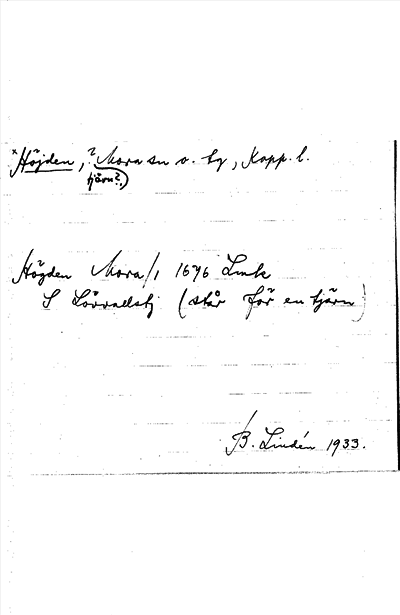 *Höjden, ? Mora sn o. by, Kopp. l.
tjärn?,
Högden Mora/1 1676 Lmk
S Lövvallstj (står för en tjärn)
B. Lindén 1933.